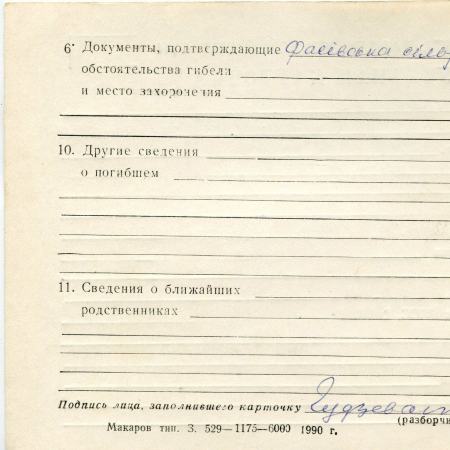 6. Документы, подтверждающие Фасівська
обстоятельства гибели
и место захоронения
10. Другие сведения
о погибшем
11. Сведения о ближайших
родственниках
Подпись лица, заполнившего карточку
(разборчи
Макаров тип. З. 529—1175—6000 1990 г.